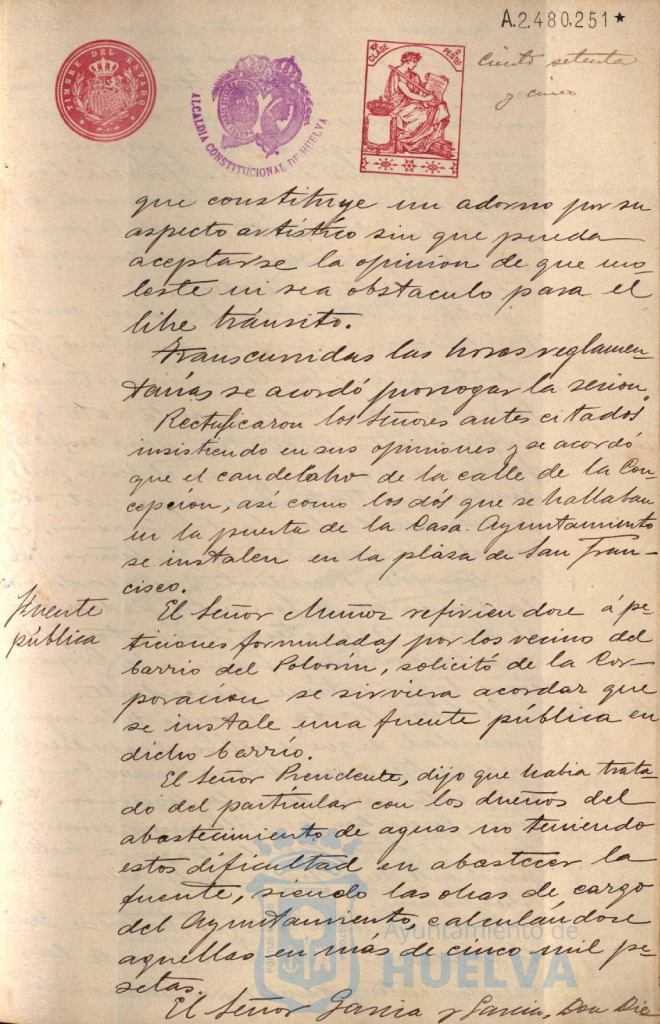 A.2.480.251*
TIMBRE DEL ESTADO
ALCALDIA CONSTITUCIONAL DE HUELVA
CLASE
PESETAS
ciento setenta
y cinco
que constituye un adorno por su
aspecto artístico sin que pueda
aceptarse la opinion de que mo-
leste ni sea obstaculo para el
libre tránsito.
Transcurridas las horas reglamen-
tarias se acordó prorrogar la sesion.
Rectificaron los Señores antes citados
insistiendo en sus opiniones y se acordó
que el candelabro de la calle de la Con-
cepción, así como los dós que se hallaban
en la puerta de la Casa Ayuntamiento
se instalen en la plaza de San Fran-
cisco.
Fuente
pública
El Señor Muñoz refiriendose á pe-
ticiones formuladas por los vecino del
barrio del Polvorín, solicitó de la Cor-
poracion se sirviera acordar que
se instale una fuente pública en
dicho barrio.
El Señor Presidente, dijo que habia trata-
do del particular con los dueños del
abastecimiento de aguas no teniendo
estos dificultad en abastecer la
fuente, siendo las obras de cargo
del Ayuntamiento, calculándose
aquellas en más de cinco mil pe-
setas.
El Señor Garcia y Garcia, Don Die
Ayuntamiento de
HUELVA